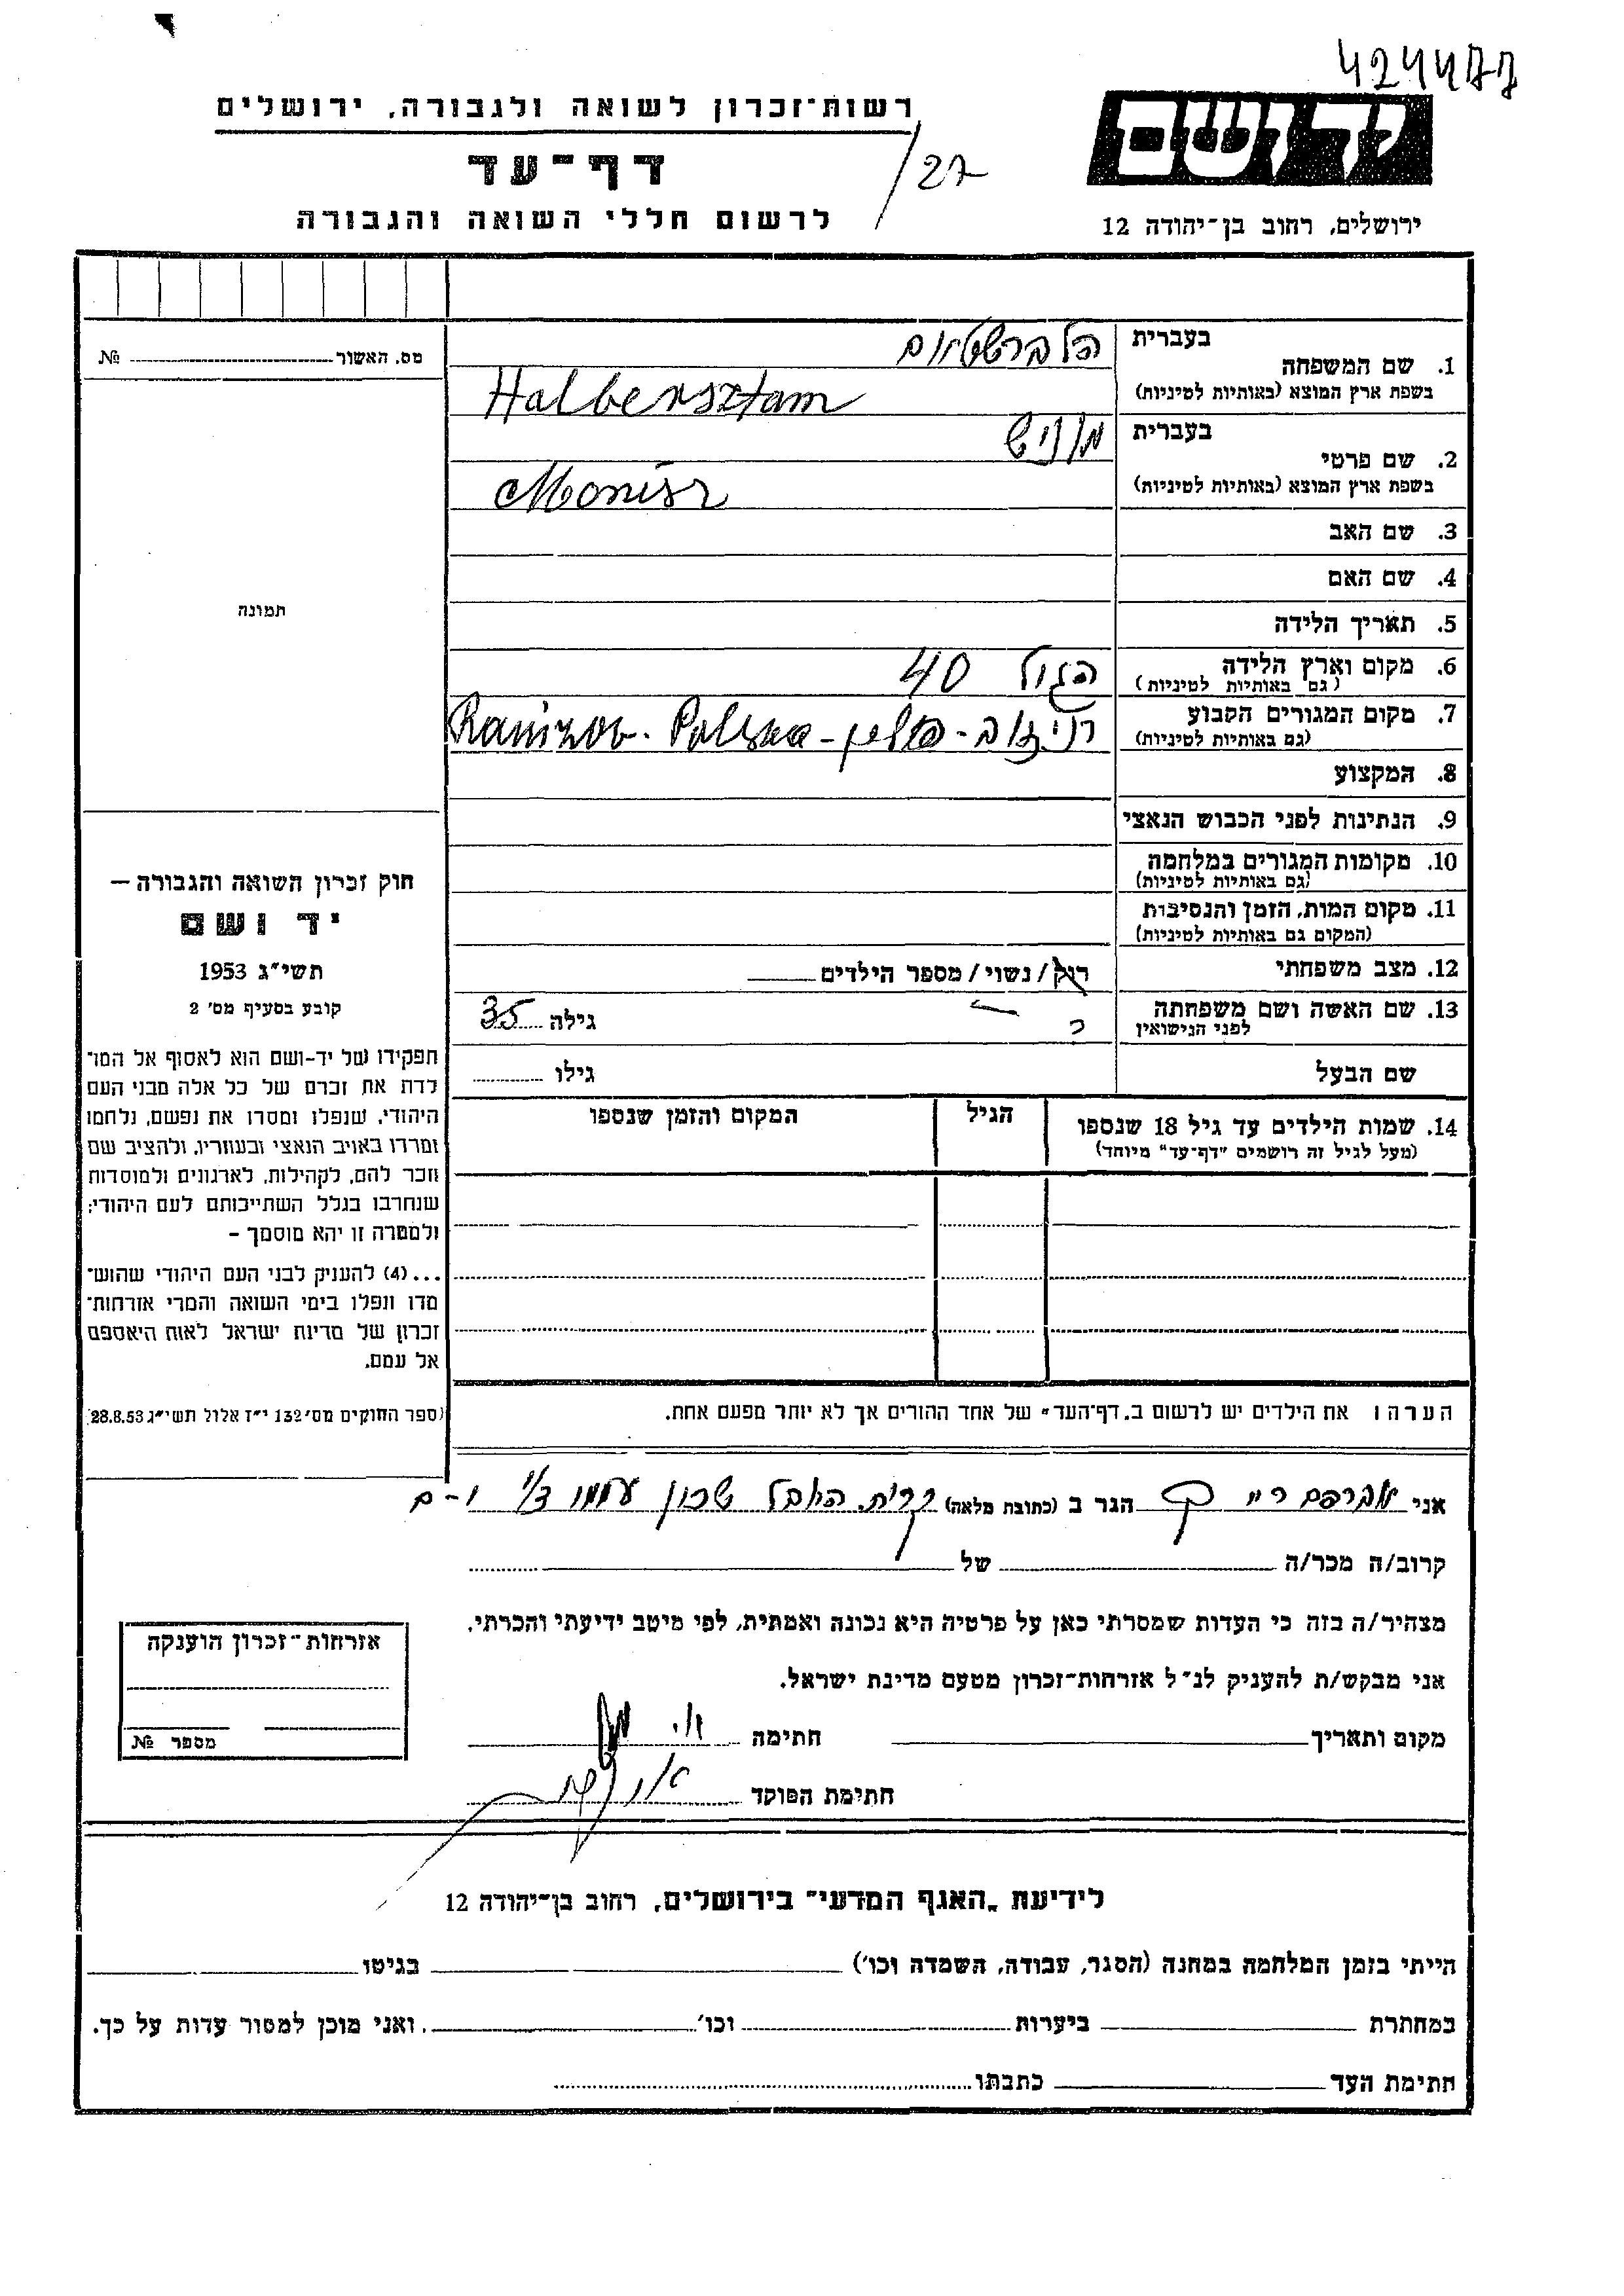 424477
ידושם
ירושלים, רחוב בן־יהודה 12
רשות־זכרון לשואה ולגבורה, ירושלים
דף־עד
27
לרשום חללי השואה והגבורה
מס. האשור № 
1. שם המשפחה
בעברית הלברשטאם
בשפת ארץ המוצא (באותיות לטיניות) Halbersztam
2. שם פרטי
בעברית מוניש
בשפת ארץ המוצא (באותיות לטיניות) Monisz
3. שם האב
4. שם האם
5. תאריך הלידה
6. מקום וארץ הלידה הגיל 40
(גם באותיות לטיניות)
7. מקום המגורים הקבוע רניזוב - פולין - Polska - Ranizow
(גם באותיות לטיניות)
8. המקצוע
9. הנתינות לפני הכבוש הנאצי
10. מקומות המגורים במלחמה
(גם באותיות לטיניות)
11. מקום המות, הזמן והנסיבות
(המקום גם באותיות לטיניות)
12. מצב משפחתי רוק/נשוי/מספר הילדים
13. שם האשה ושם משפחתה גילה 35
לפני הנישואין
שם הבעל גילו
14. שמות הילדים עד גיל 18 שנספו הגיל המקום והזמן שנספו
(מעל לגיל זה רושמים "דף־עד" מיוחד)
תמונה
חוק זכרון השואה והגבורה —
יד ושם
תשי"ג 1953
קובע בסעיף מס' 2
תפקידו של יד-ושם הוא לאסוף אל המו־
לדת את זכרם של כל אלה מבני העם
היהודי, שנפלו ומסרו את נפשם, נלחמו
ומרדו באויב הנאצי ובעוזריו, ולהציב שם
וזכר להם, לקהילות, לארגונים ולמוסדות
שנחרבו בגלל השתייכותם לעם היהודי;
ולמטרה זו יהא מוסמך –
...(4) להעניק לבני העם היהודי שהוש־
מדו ונפלו בימי השואה והמרי אזרחות־
זכרון של מדינת ישראל לאות היאספם
אל עמם.
(ספר החוקים מס' 132 י"ז אלול תשי"ג 28.8.53)
הערה: את הילדים יש לרשום ב"דף־העד" של אחד ההורים אך לא יותר מפעם אחת.
אני אברהם הגר ב (כתובת מלאה) קרית היובל שכון עממי
קרוב/ה מכר/ה של
מצהיר/ה בזה כי העדות שמסרתי כאן על פרטיה היא נכונה ואמתית, לפי מיטב ידיעתי והכרתי.
אני מבקש/ת להעניק לנ"ל אזרחות־זכרון מטעם מדינת ישראל.
מקום ותאריך חתימה
חתימת הפוקד
אזרחות־זכרון הוענקה
מספר №
לידיעת "האגף המדעי" בירושלים, רחוב בן־יהודה 12
הייתי בזמן המלחמה במחנה (הסגר, עבודה, השמדה וכו') בגיטו
במחתרת ביערות וכו' . ואני מוכן למסור עדות על כך.
חתימת העד כתבתו